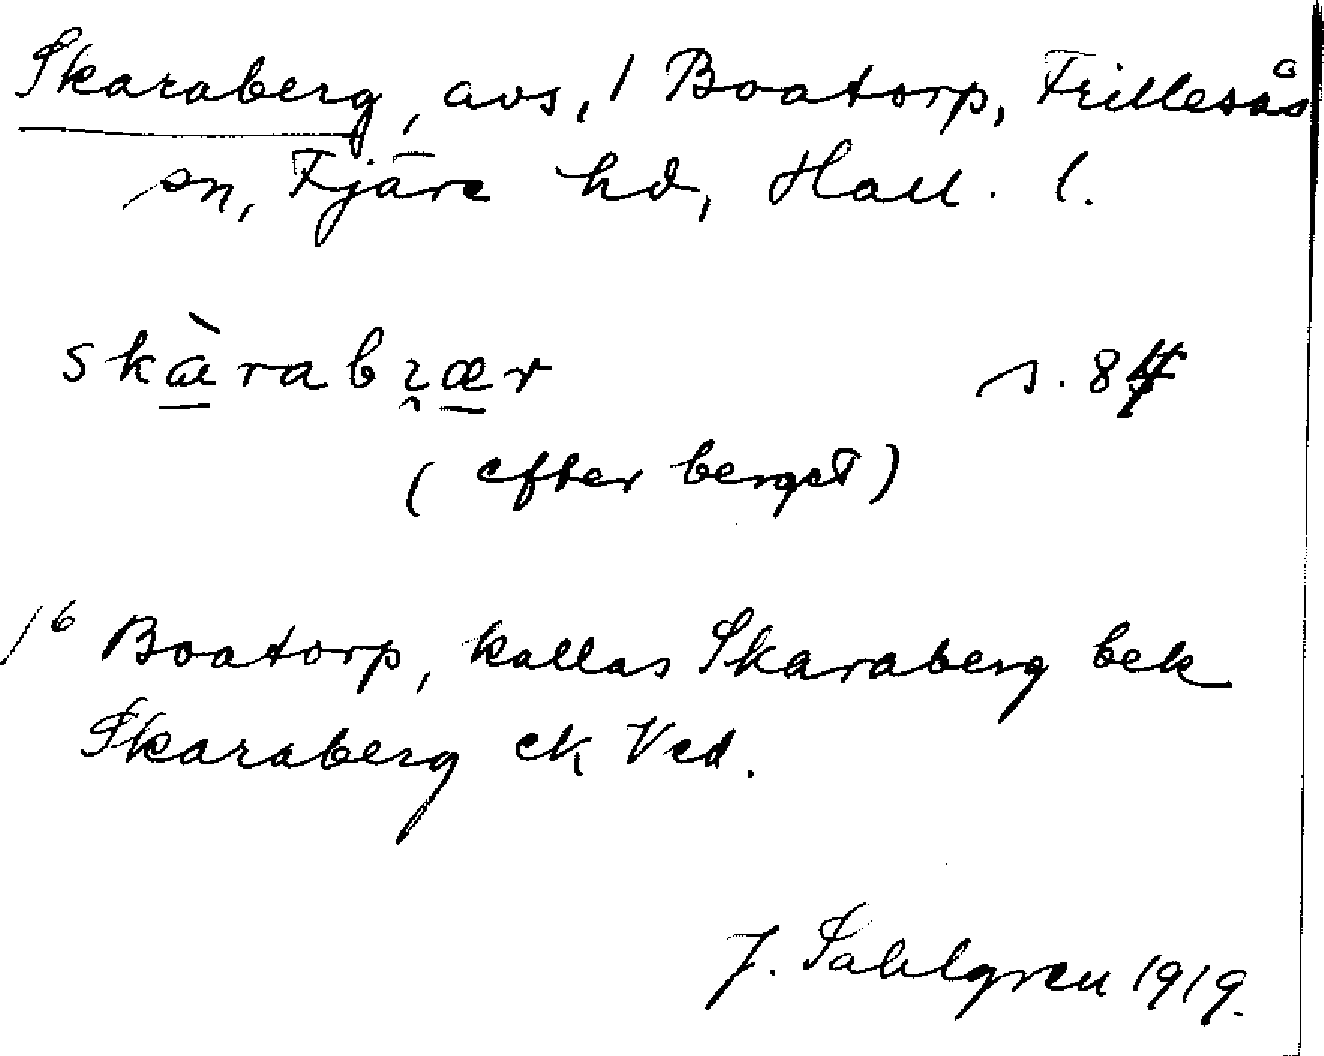 Skaraberg, avs, 1 Boatorp, Frillesås
sn, Fjäre hd, Hall. l.
skàrabɿær s. 84
(efter berget)
1⁶ Boatorp, kallas Skaraberg bek
Skaraberg ek Ved.
J. Sahlgren 1919.